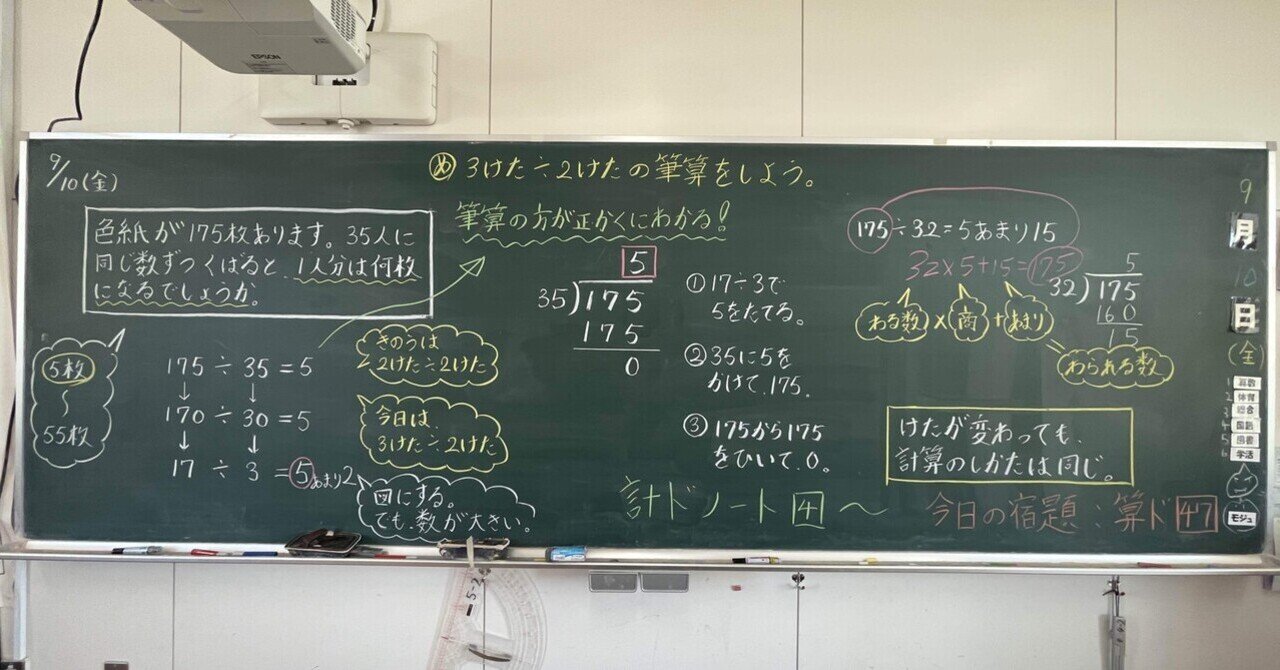 EPSON
9/10(金)
め 3けた÷2けたの筆算をしよう。
色紙が175枚あります。35人に
同じ数ずつくばると、1人分は何枚
になるでしょうか。
5枚
55枚
175÷35=5
↓ ↓
170÷30=5
↓ ↓
17÷3=5あまり2
きのうは
2けた÷2けた
今日は、
3けた÷2けた
図にする。
でも、数が大きい。
筆算の方が正かくにわかる!
5
35)175
175
0
①17÷3で
5をたてる。
②35に5を
かけて、175。
③175から175
をひいて、0。
175÷32=5あまり15
32×5+15=175
わる数×商+あまり
=わられる数
5
32)175
160
15
けたが変わっても、
計算のしかたは同じ。
計ドノート41~
今日の宿題:算ド47
9
月
10
日
(金)
1 算数
2 体育
3 総合
4 国語
5 図書
6 学活
モジュ